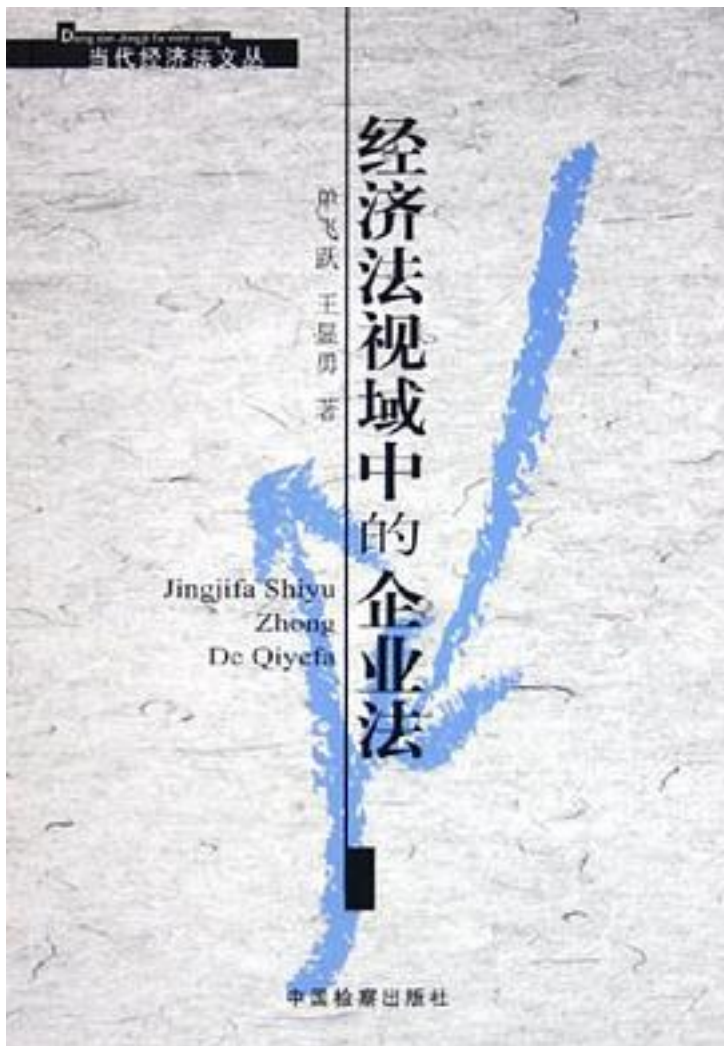 Dang dai Jingji fa wen cong
当代经济法文丛
经济法视域中的企业法
单飞跃 王显勇 著
Jingjifa Shiyu
Zhong
De Qiyefa
中国检察出版社